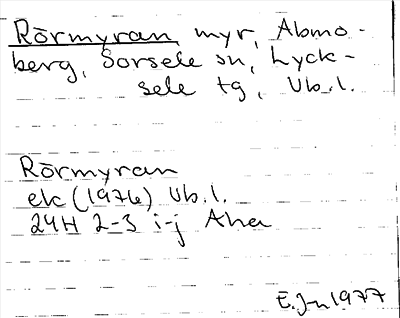 Rörmyran myr, Abmo-
berg, Sorsele sn, Lyck-
sele tg, Vb.l.
Rörmyran
ek (1976) Vb.l.
24H 2-3 i-j Aha
E.J-n 1977